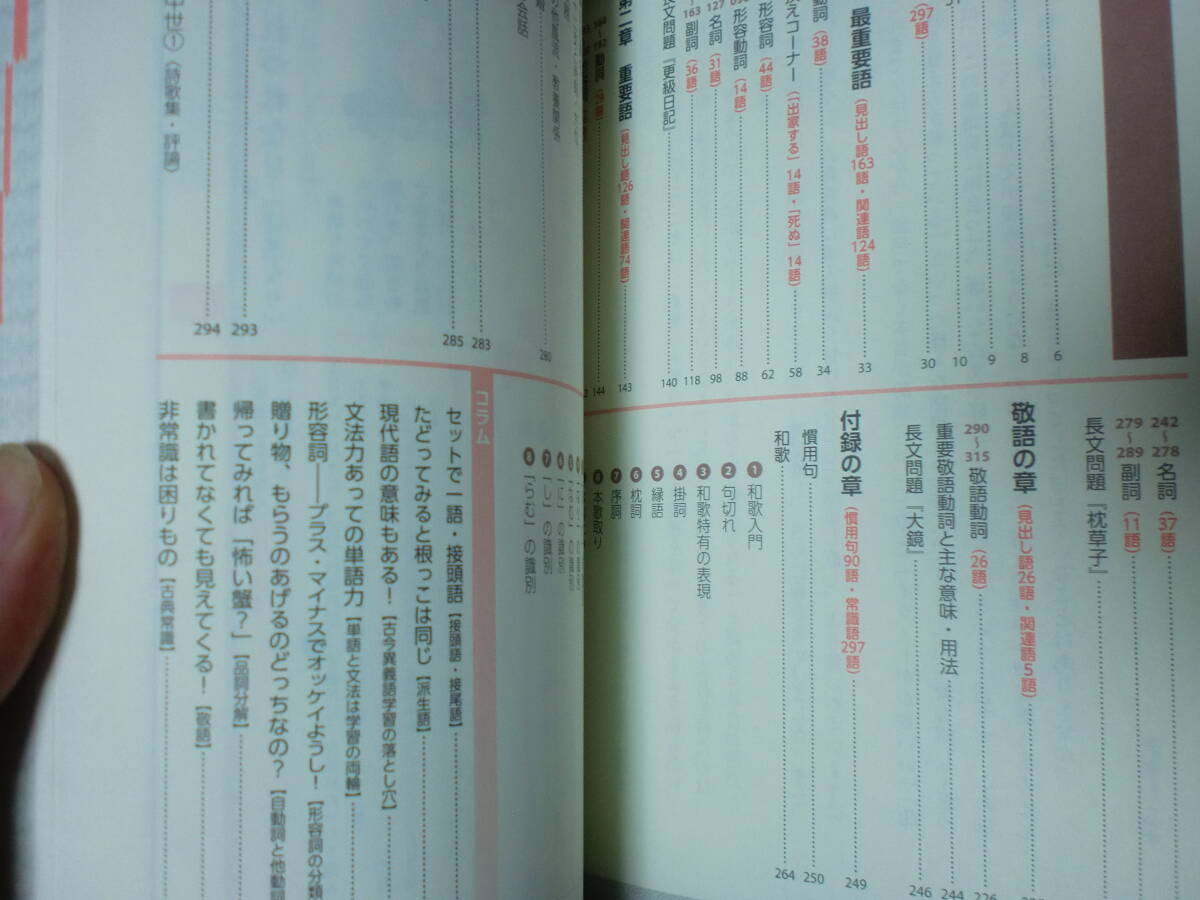 297語)
最重要語 (見出し語163語・関連語124語) 33
動詞 (38語) 34
えコーナー (「出家する」14語・「死ぬ」14語) 58
形容詞 (44語) 62
形容動詞 (14語) 88
127 名詞 (31語) 98
163 副詞 (36語) 118
長文問題『更級日記』 140
第二章 重要語 (見出し語126語・関連語74語) 143
動詞 144
6
8
9
10
30
242〜278 名詞 (37語)
279〜289 副詞 (11語)
長文問題『枕草子』
敬語の章 (見出し語26語・関連語5語)
290〜315 敬語動詞 (26語) 226
重要敬語動詞と主な意味・用法 244
長文問題『大鏡』 246
付録の章 (慣用句90語・常識語297語) 249
慣用句 250
和歌 264
❶ 和歌入門
❷ 句切れ
❸ 和歌特有の表現
❹ 掛詞
❺ 縁語
❻ 枕詞
❼ 序詞
❽ 本歌取り
280
会話
283
285
293
中世① (詩歌集・評論) 294
「に」の識別
❼ 「し」の識別
❽ 「らむ」の識別
コラム
セットで一語・接頭語【接頭語・接尾語】
たどってみると根っこは同じ【派生語】
現代語の意味もある!【古今異義語学習の落とし穴】
文法力あっての単語力【単語と文法は学習の両輪】
形容詞――プラス・マイナスでオッケイようし!【形容詞の分類
贈り物、もらうのあげるのどっちなの?【自動詞と他動詞
帰ってみれば「怖い蟹?」【品詞分解】
書かれてなくても見えてくる!【敬語】
非常識は困りもの【古典常識】